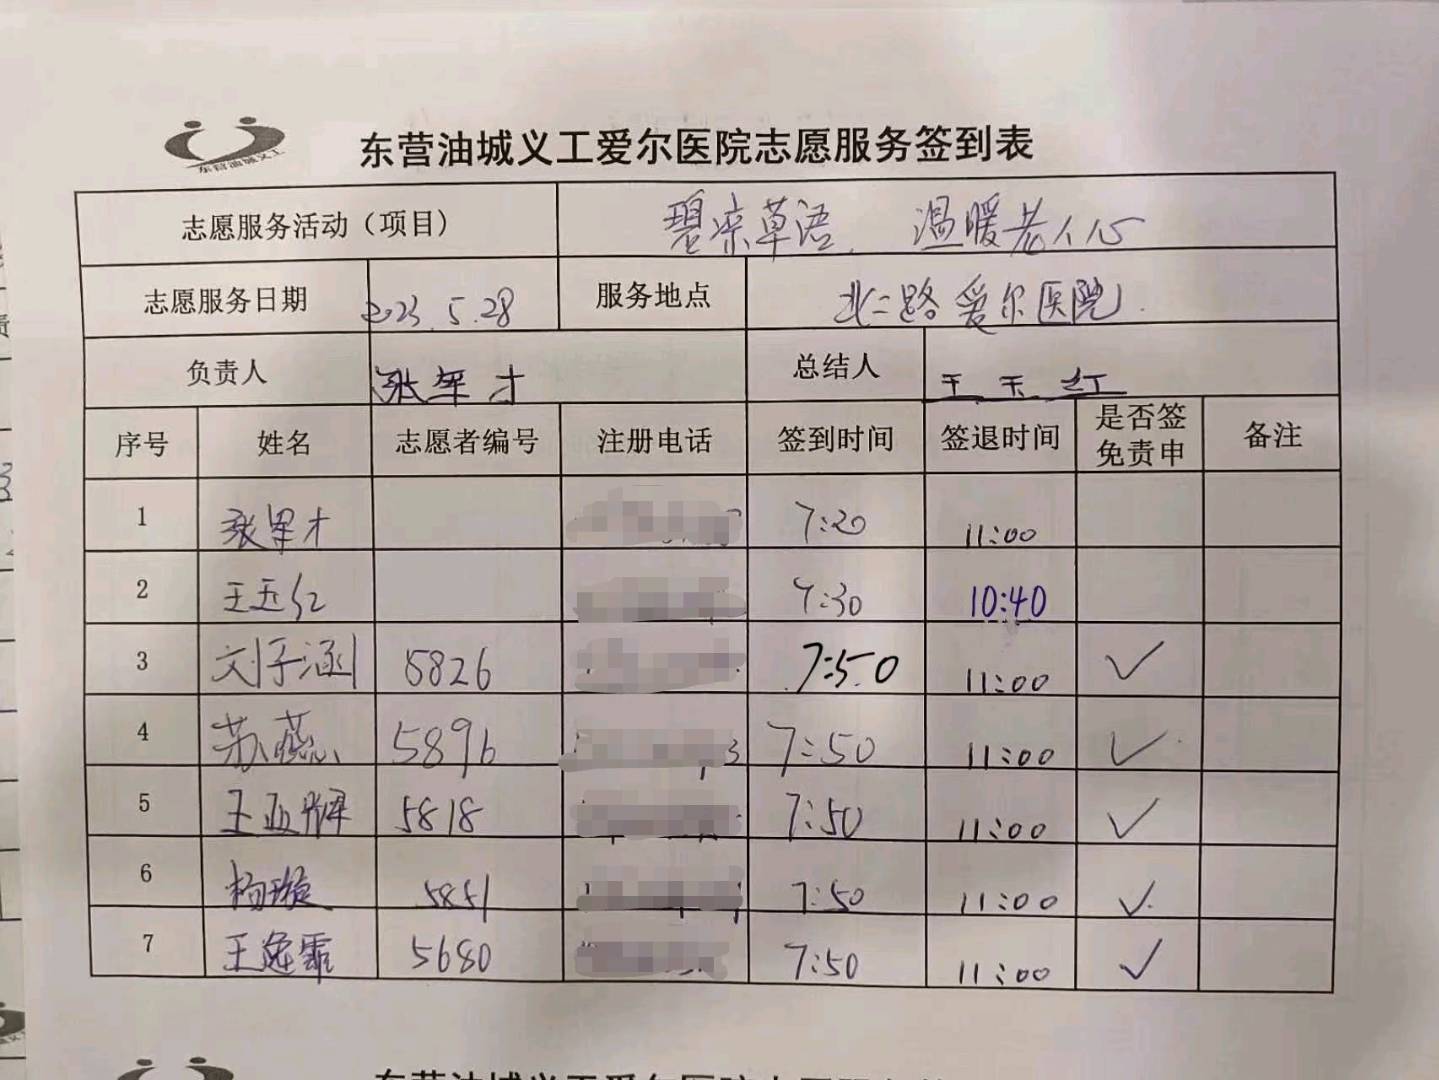 东营油城义工
东营油城义工爱尔医院志愿服务签到表
志愿服务活动（项目） 碧涼草语 温暖老人心
志愿服务日期 2023.5.28 服务地点 北二路爱尔医院
负责人 张军才 总结人 王玉红
序号 姓名 志愿者编号 注册电话 签到时间 签退时间 是否签免责申 备注
1 张军才 7:20 11:00
2 王玉红 7:30 10:40
3 刘子涵 5826 7:50 11:00 ✓
4 苏蕊 5896 7:50 11:00 ✓
5 王亚辉 5818 7:50 11:00 ✓
6 杨璇 5851 7:50 11:00 ✓
7 王逸霏 5680 7:50 11:00 ✓